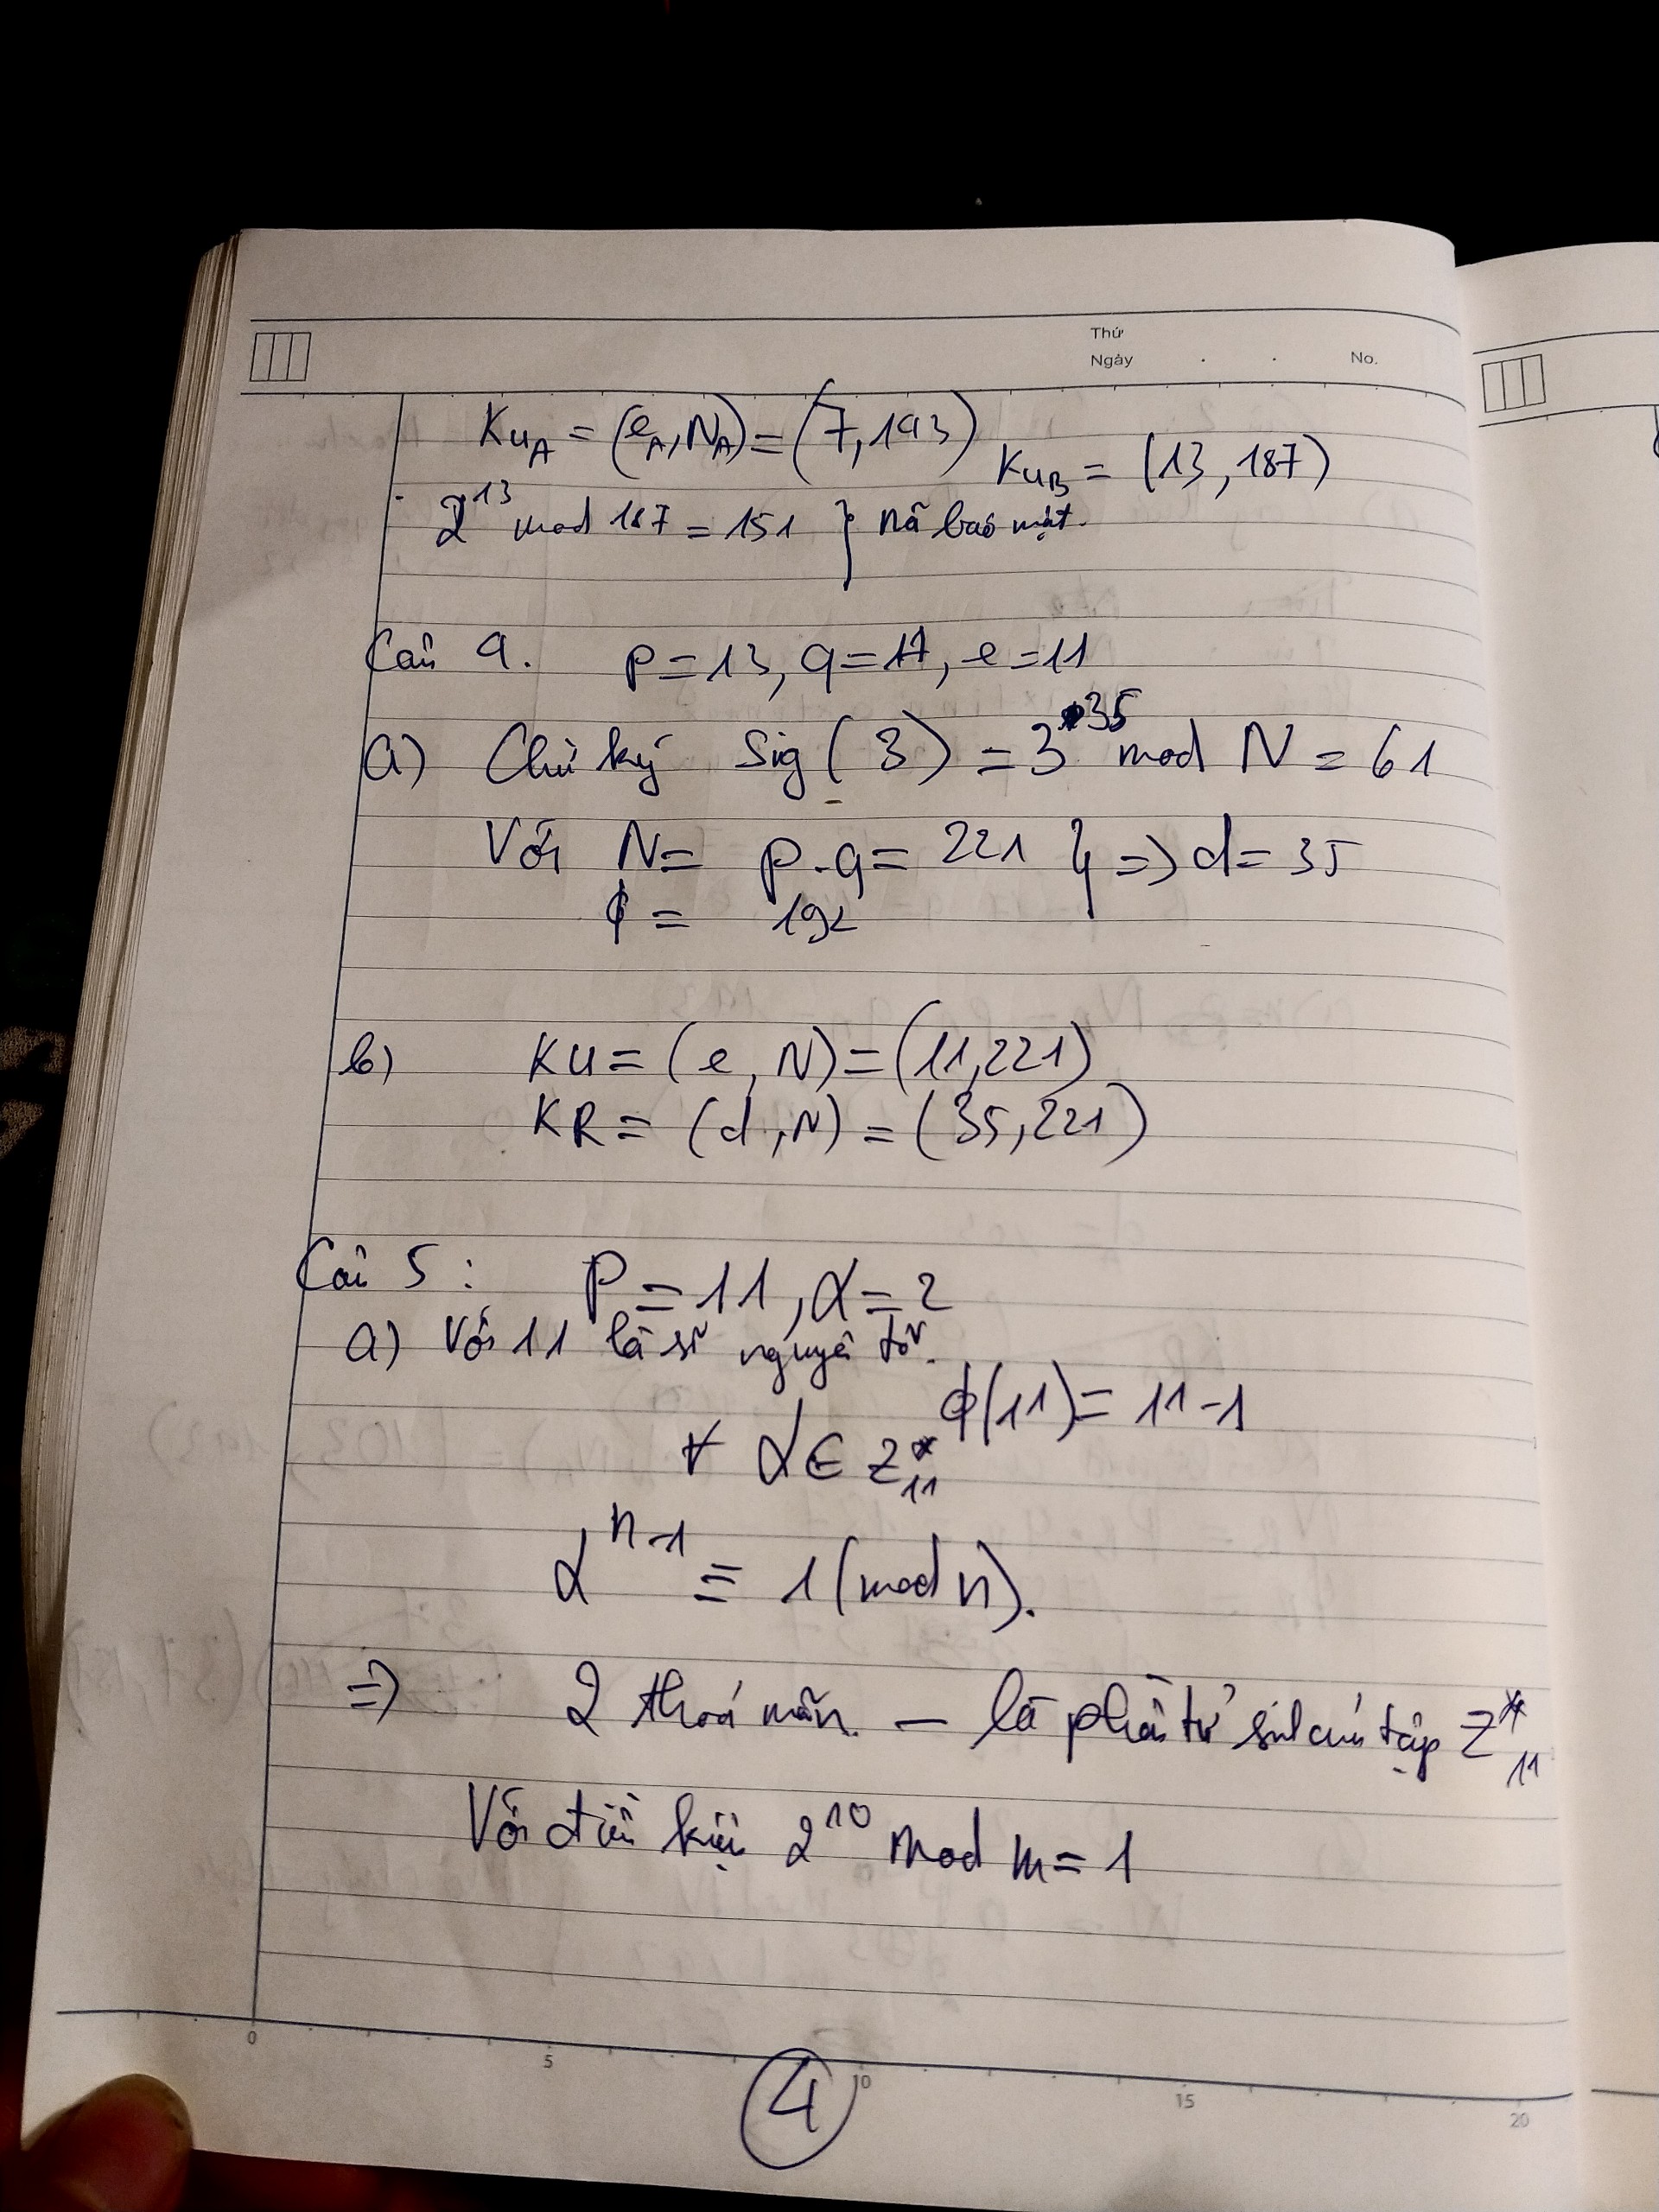 Thứ
Ngày . . No.
KuA = (eA, NA) = (7, 143) KuB = (13, 187)
2^13 mod 187 = 151 } Mã bảo mật.
Câu 4. p=13, q=17, e=11
a) Chữ ký Sig(3) = 3^35 mod N = 61
Với N = p.q = 221 } => d = 35
ϕ = 192
b) KU = (e, N) = (11, 221)
KR = (d, N) = (35, 221)
Câu 5: P = 11, α = 2
a) Với 11 là số nguyên tố.
ϕ(11) = 11 - 1
∀ α ∈ Z*11
α^n-1 ≡ 1 (mod n).
=> 2 thoả mãn. — là phần tử sinh của tập Z*11
Với điều kiện 2^10 mod 11 = 1
0 5 10 15 20
4